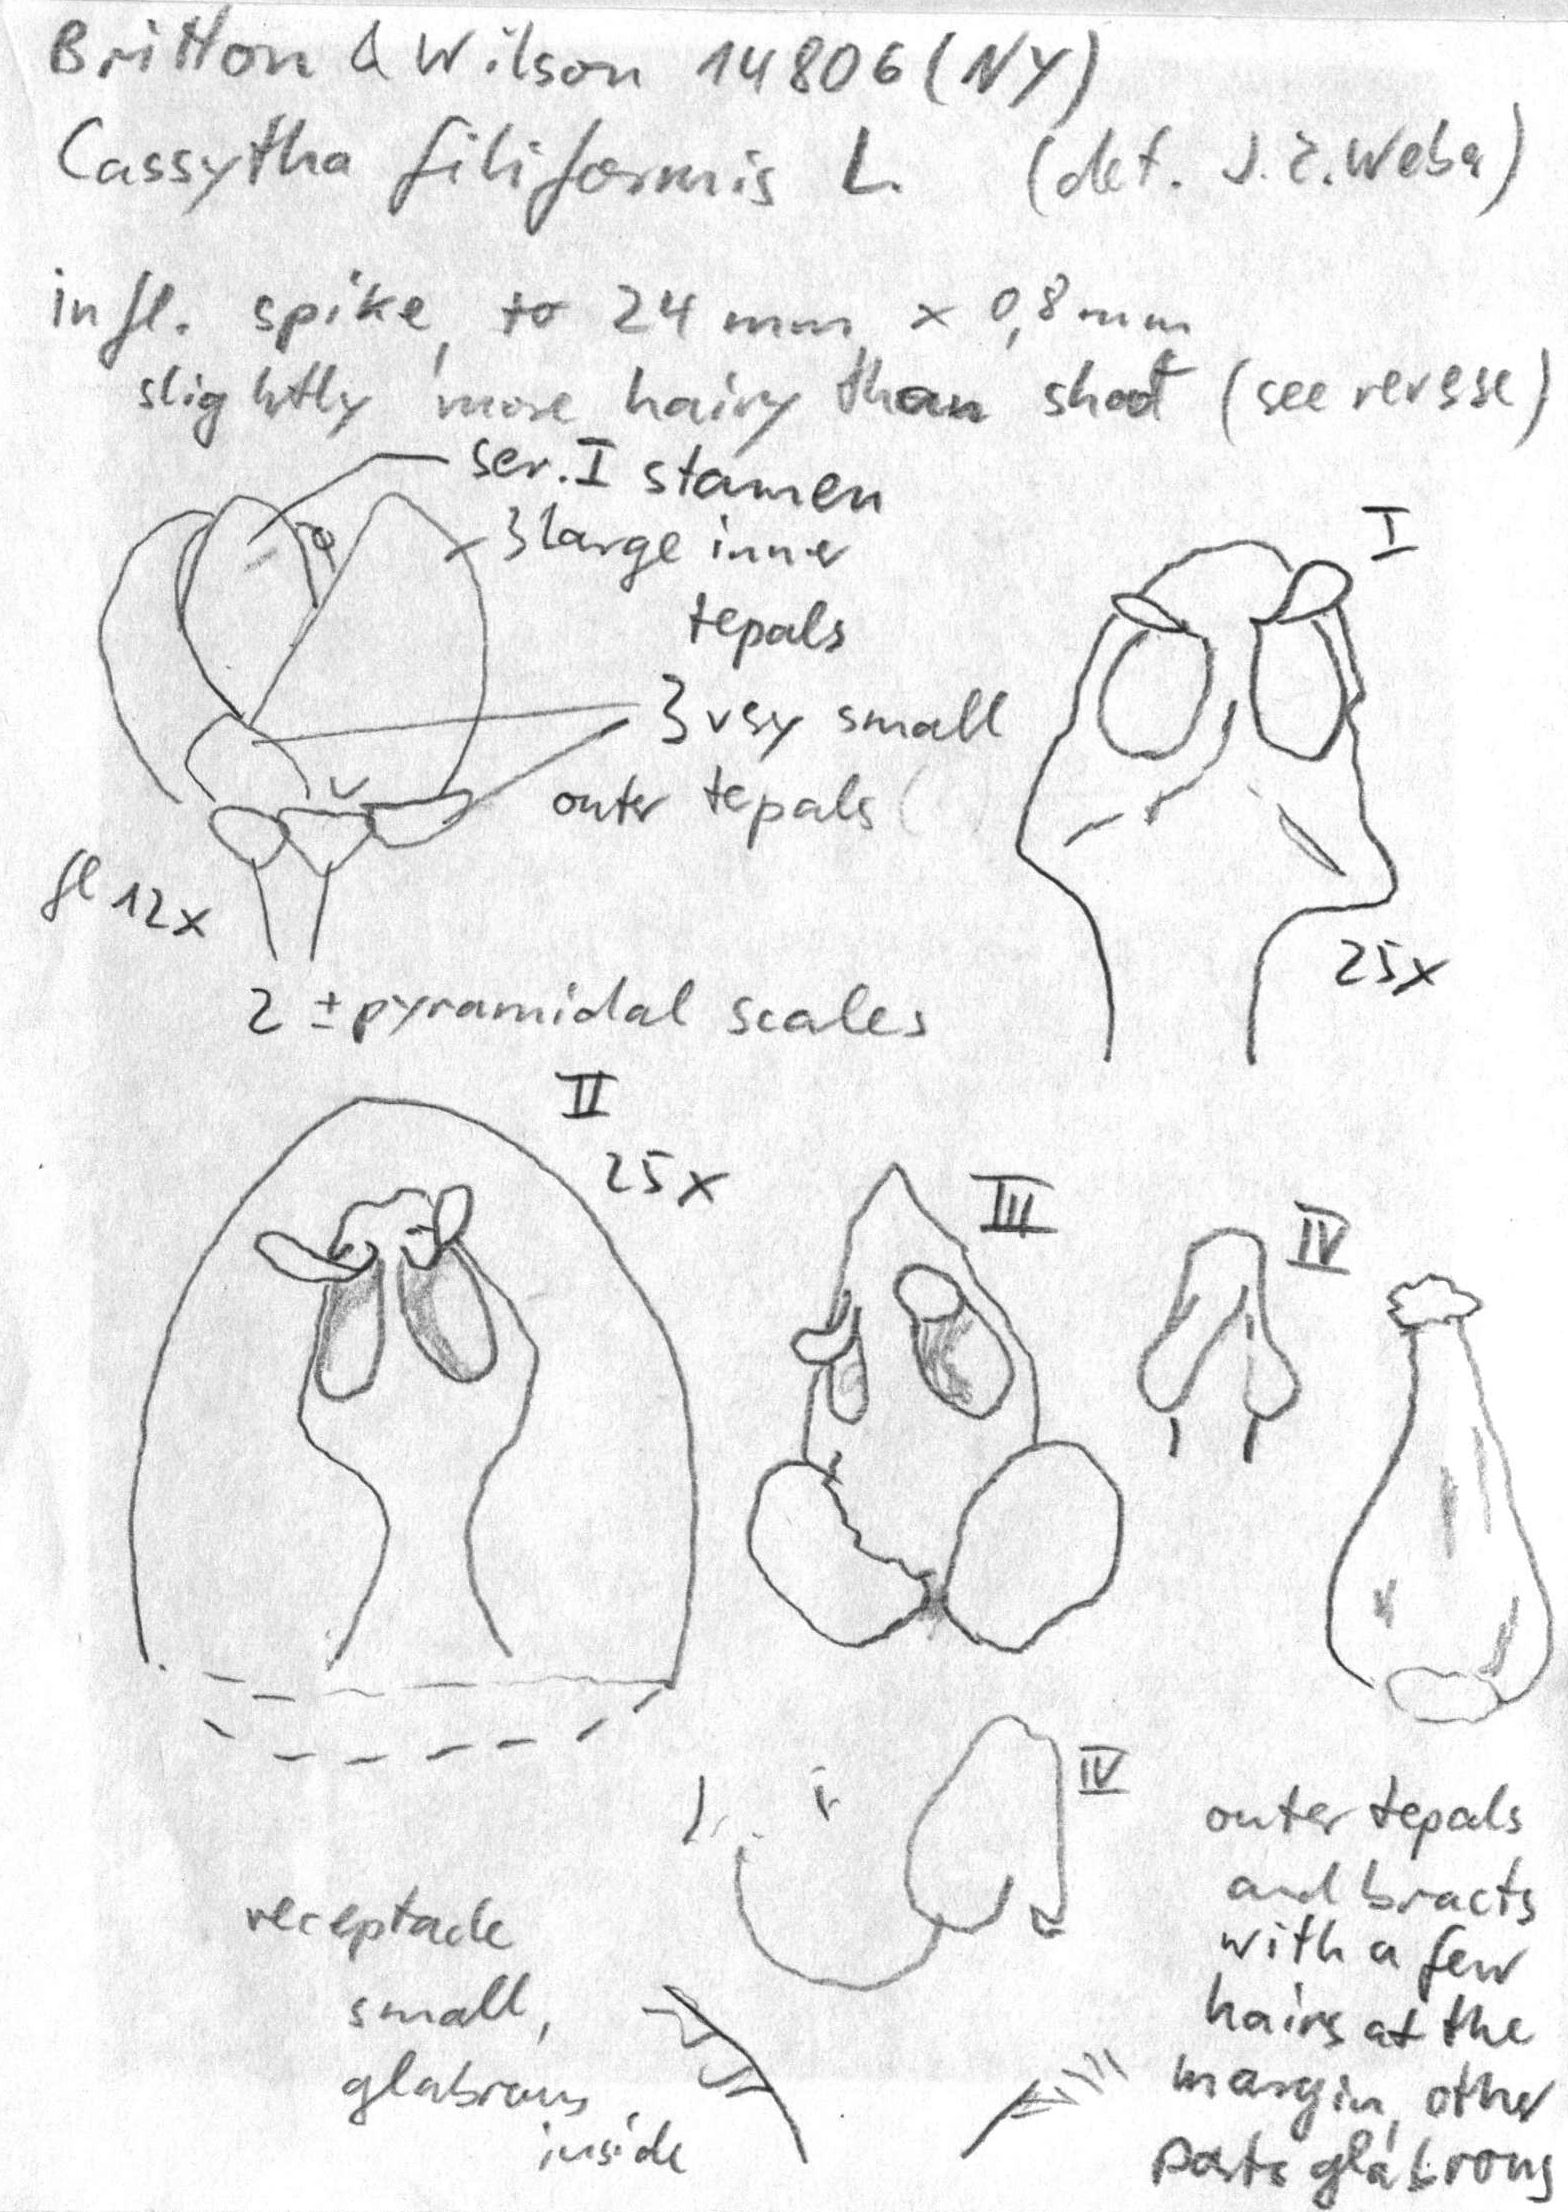 Britton & Wilson 14806 (NY)
Cassytha filiformis L. (det. J.Z. Weber)
infl. spike, to 24 mm x 0,8 mm
slightly more hairy than shoot (see reverse)
ser. I stamen
3 large inner
tepals
3 very small
outer tepals
fl 12x
2 ± pyramidal scales
I
25x
II
25x
III
IV
IV
receptacle
small,
glabrous
inside
outer tepals
and bracts
with a few
hairs at the
margin, other
parts glabrous